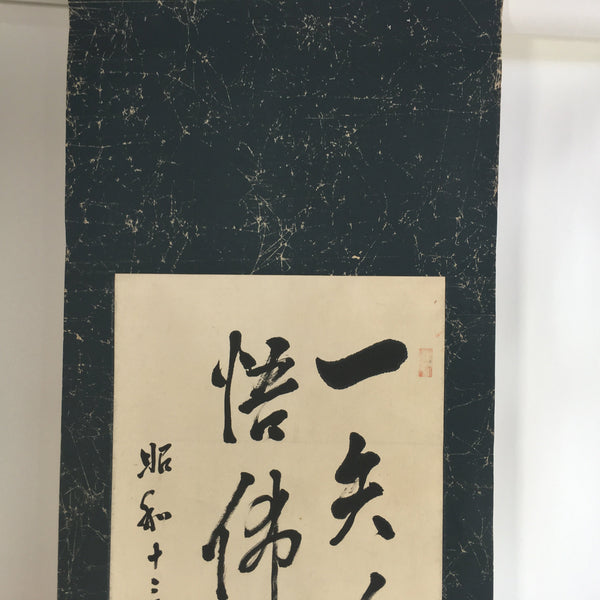 一矢
悟佛
昭和十二